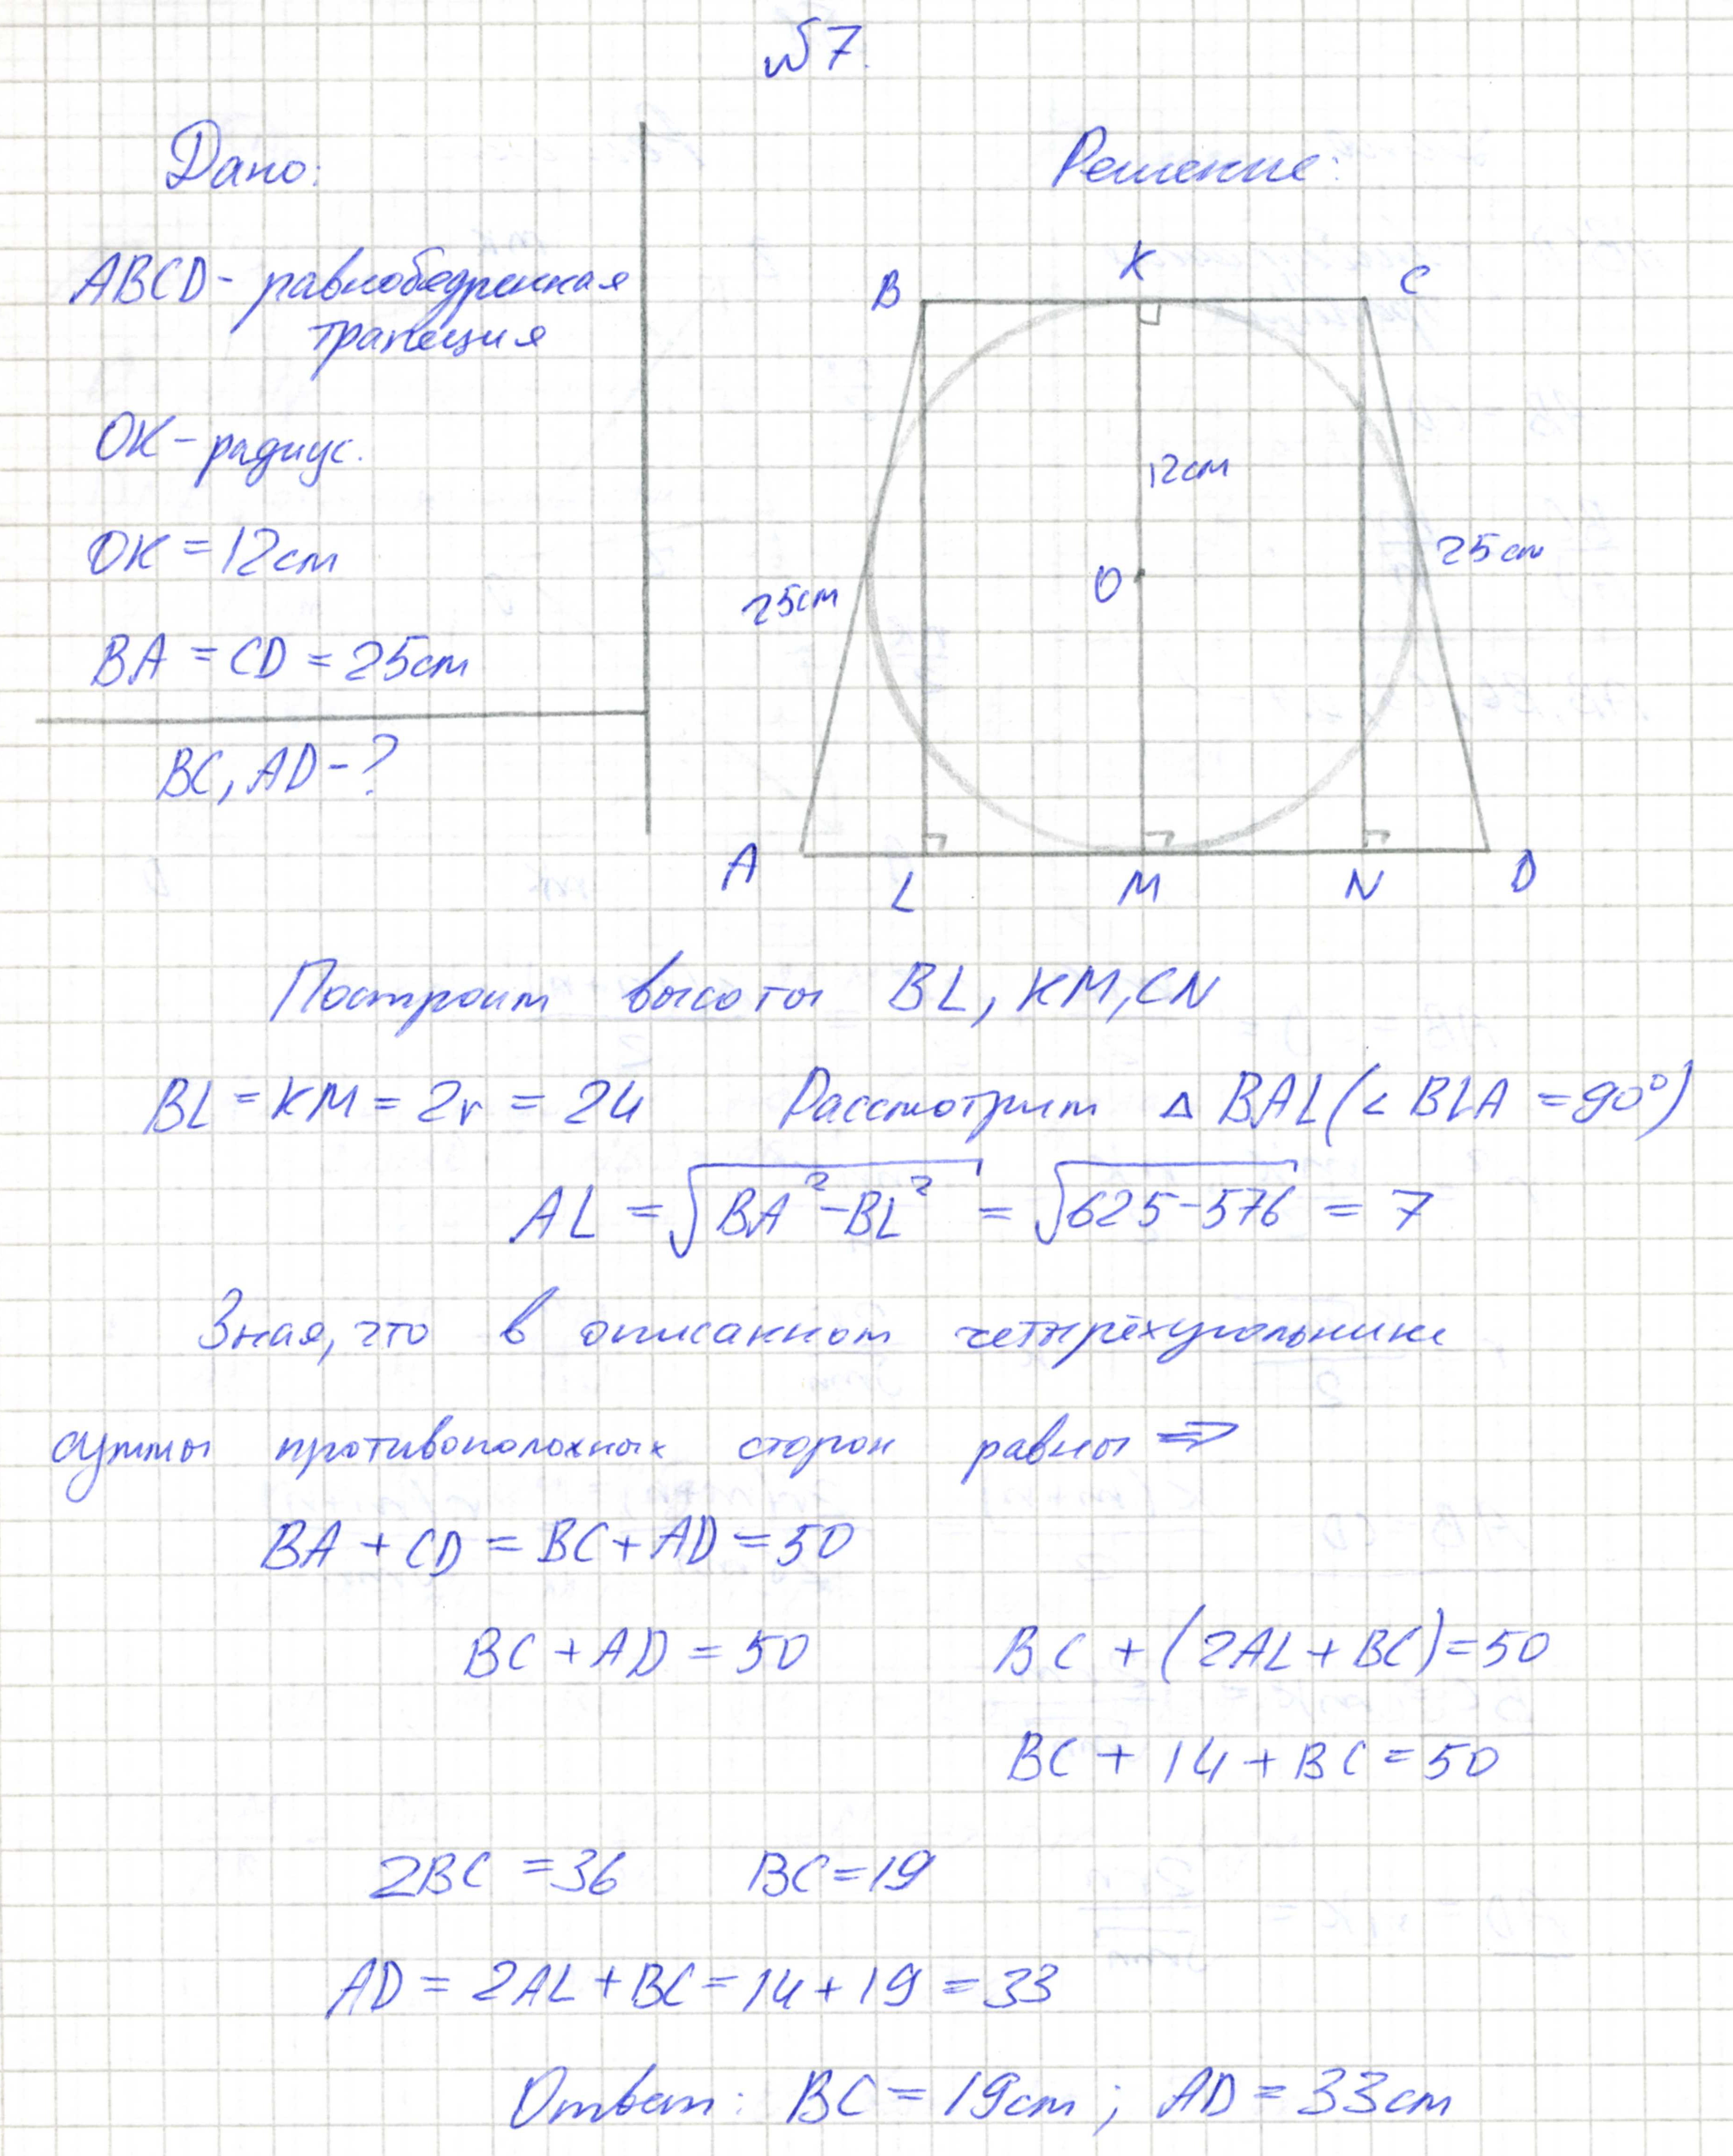 №7.
Дано:
ABCD - равнобедренная
трапеция
OK - радиус.
OK = 12см
BA = CD = 25см
BC, AD - ?
Решение:
B K C
12см
O
25см
25см
A L M N D
Построим высоты BL, KM, CN
BL = KM = 2r = 24 Рассмотрим △ BAL (∠ BLA = 90°)
AL = √(BA² - BL²) = √(625 - 576) = 7
Зная, что в описанном четырёхугольнике
суммы противоположных сторон равны ⇒
BA + CD = BC + AD = 50
BC + AD = 50 BC + (2AL + BC) = 50
BC + 14 + BC = 50
2BC = 36 BC = 19
AD = 2AL + BC = 14 + 19 = 33
Ответ: BC = 19см; AD = 33см